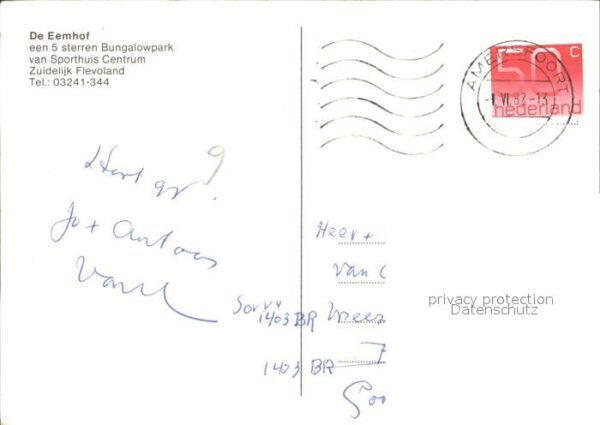 De Eemhof
een 5 sterren Bungalowpark
van Sporthuis Centrum
Zuidelijk Flevoland
Tel.: 03241-344
50 c
nederland
AMERSFOORT
-1.VI.82-13
Hart gr.
9
Jo + Antoos
Heer +
van
1403 BR
1403 BR
Goo
privacy protection
Datenschutz